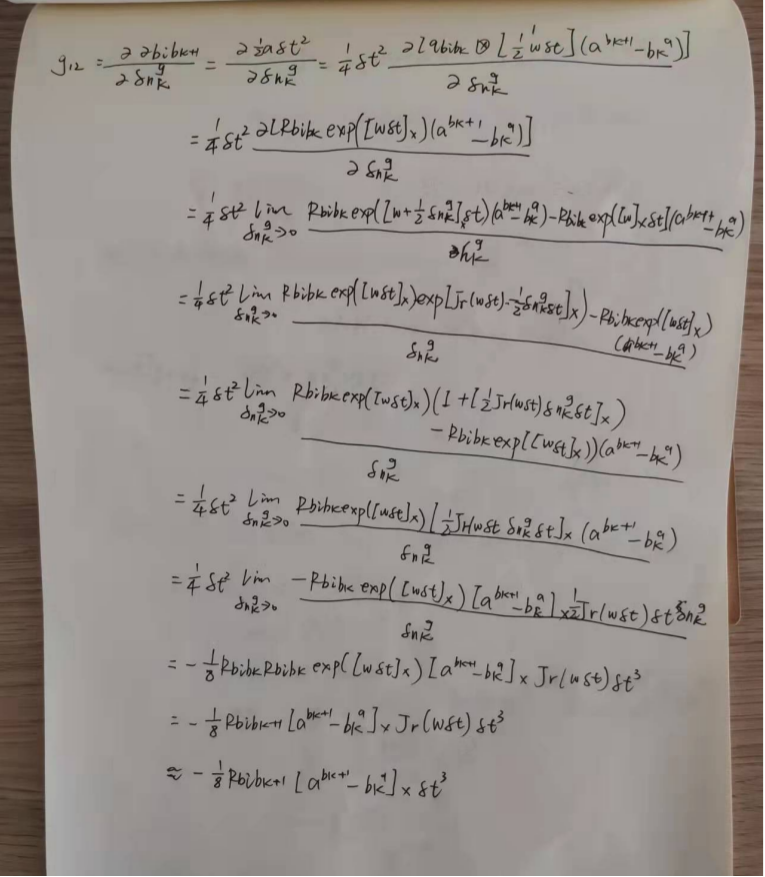 g₁₂ = ∂ ∂bibk+1 / ∂ δnₖᵍ = ∂ ½aδt² / ∂ δnₖᵍ = ¼ δt² ∂[qbibk ⊗ [½ wδt](a^{bk+1} − bₖᵃ)] / ∂ δnₖᵍ
= ¼ δt² ∂[Rbibk exp([wδt]ₓ)(a^{bk+1} − bₖᵃ)] / ∂ δnₖᵍ
= ¼ δt² lim_{δnₖᵍ→0} Rbibk exp([w + ½ δnₖᵍ]ₓδt)(a^{bk+1} − bₖᵃ) − Rbibk exp([w]ₓδt](a^{bk+1} − bₖᵃ) / δnₖᵍ
= ¼ δt² lim_{δnₖᵍ→0} Rbibk exp([wδt]ₓ)exp[Jr(wδt)·½δnₖᵍδt]ₓ) − Rbibk exp([wδt]ₓ) (a^{bk+1} − bₖᵃ) / δnₖᵍ
= ¼ δt² lim_{δnₖᵍ→0} Rbibk exp([wδt]ₓ)(I + [½Jr(wδt)δnₖᵍδt]ₓ) − Rbibk exp[[wδt]ₓ))(a^{bk+1} − bₖᵃ) / δnₖᵍ
= ¼ δt² lim_{δnₖᵍ→0} Rbibk exp([wδt]ₓ)[½Jr(wδt δnₖᵍδt]ₓ (a^{bk+1} − bₖᵃ) / δnₖᵍ
= ¼ δt² lim_{δnₖᵍ→0} −Rbibk exp([wδt]ₓ)[a^{bk+1} − bₖᵃ]ₓ½Jr(wδt)δt δnₖᵍ / δnₖᵍ
= −⅛ RbibkRbibk exp([wδt]ₓ)[a^{bk+1} − bₖᵃ]ₓ Jr(wδt)δt³
= −⅛ Rbibk+1 [a^{bk+1} − bₖᵃ]ₓ Jr(wδt)δt³
≈ −⅛ Rbibk+1 [a^{bk+1} − bₖᵃ]ₓ δt³